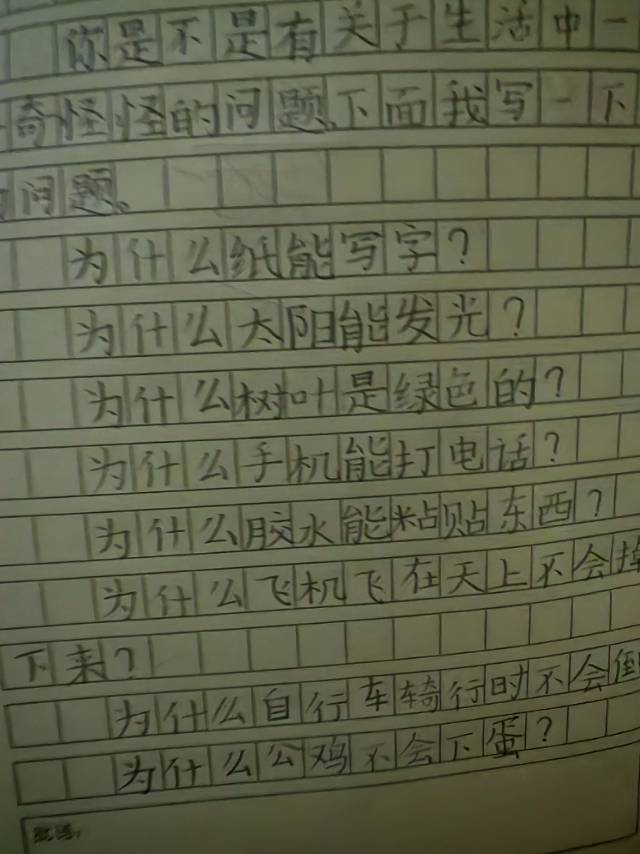 你是不是有关于生活中一
奇怪怪的问题。下面我写一下
问题。
为什么纸能写字？
为什么太阳能发光？
为什么树叶是绿色的？
为什么手机能打电话？
为什么胶水能粘贴东西？
为什么飞机飞在天上不会掉
下来？
为什么自行车骑行时不会倒
为什么公鸡不会下蛋？
批语：